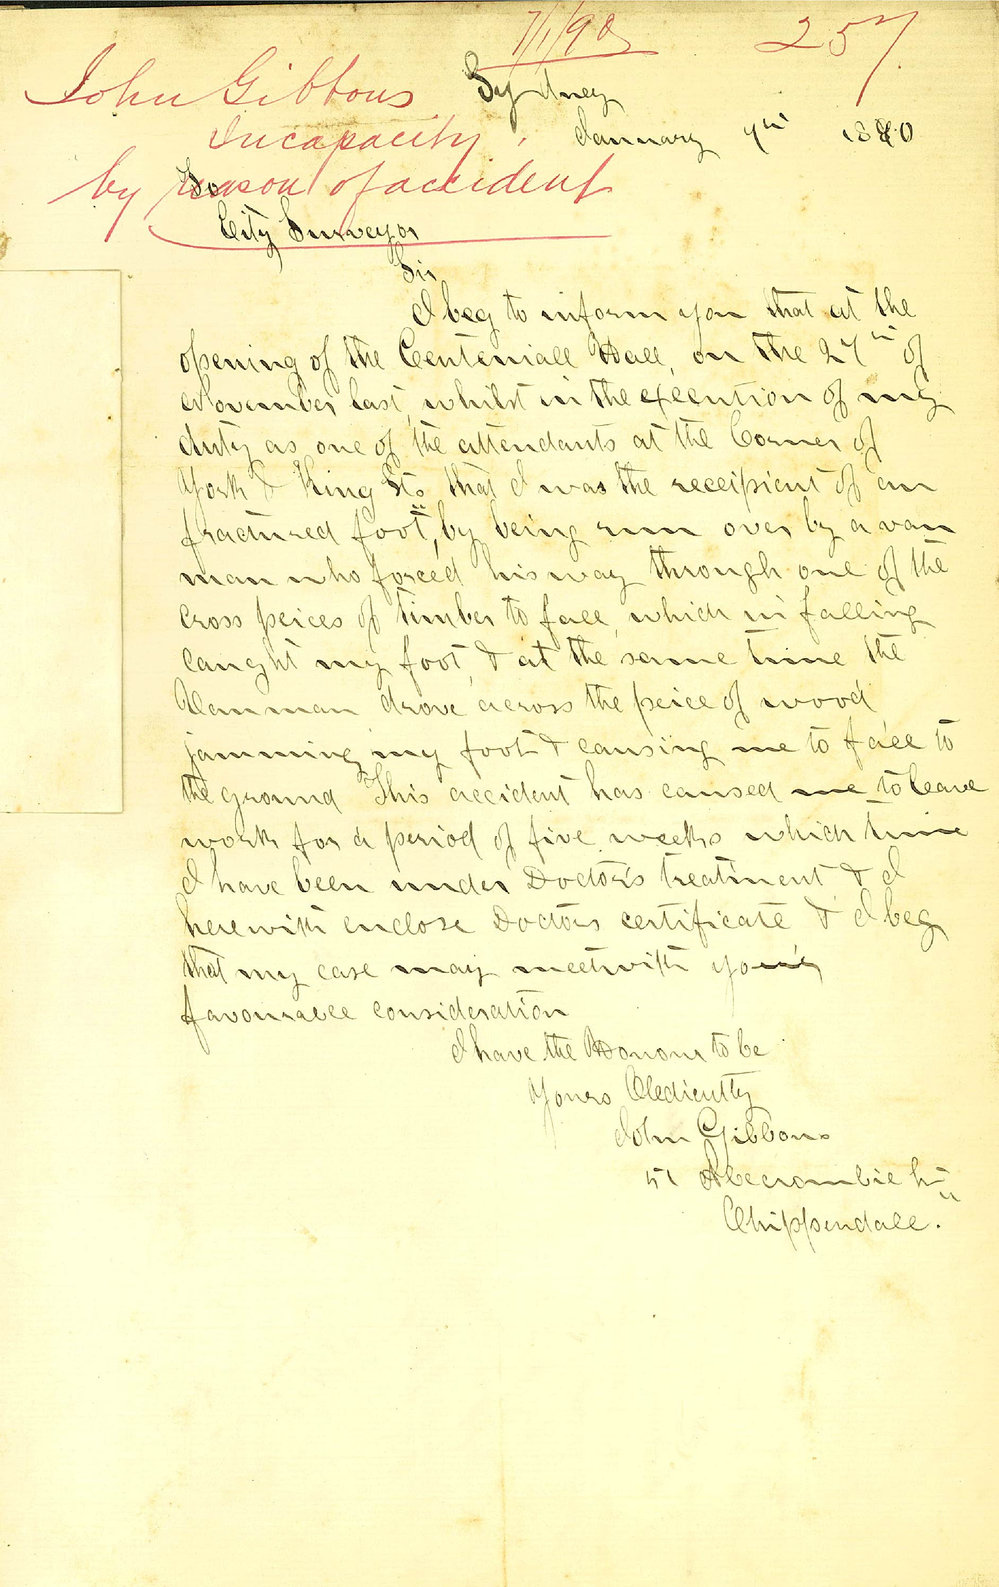 7/1/90 257
John Gibbons
Sydney
Incapacity, January 7th 1890
by reason of accident
To
City Surveyor
Sir
I beg to inform you that at the
opening of the Centeniall Hall, on the 27th of
November last, whilst in the execution of my
duty as one of the attendants at the Corner of
York & King Sts that I was the receipient of an
fractured foot, by being run over by a van
man who forced his way through one of the
cross peices of timber to fall, which in falling
caught my foot, & at the same time the
Vanman drove across the peice of wood
jamming my foot & causing me to fall to
the ground This accident has caused me to leave
work for a period of five weeks which time
I have been under Doctors treatment & I
herewith enclose Doctors certificate & I beg
that my case may meet with your
favourable consideration
I have the Honour to be
Yours Obediently
John Gibbons
51 Abercrombie St
Chippendale.